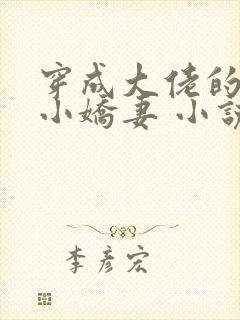 穿成大佬的
小嬌妻 小說
李彦宏